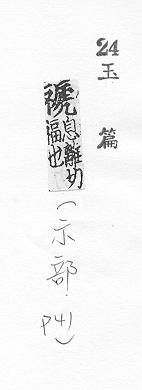 24
玉篇
禠息離切
福也
(示部.
P41)